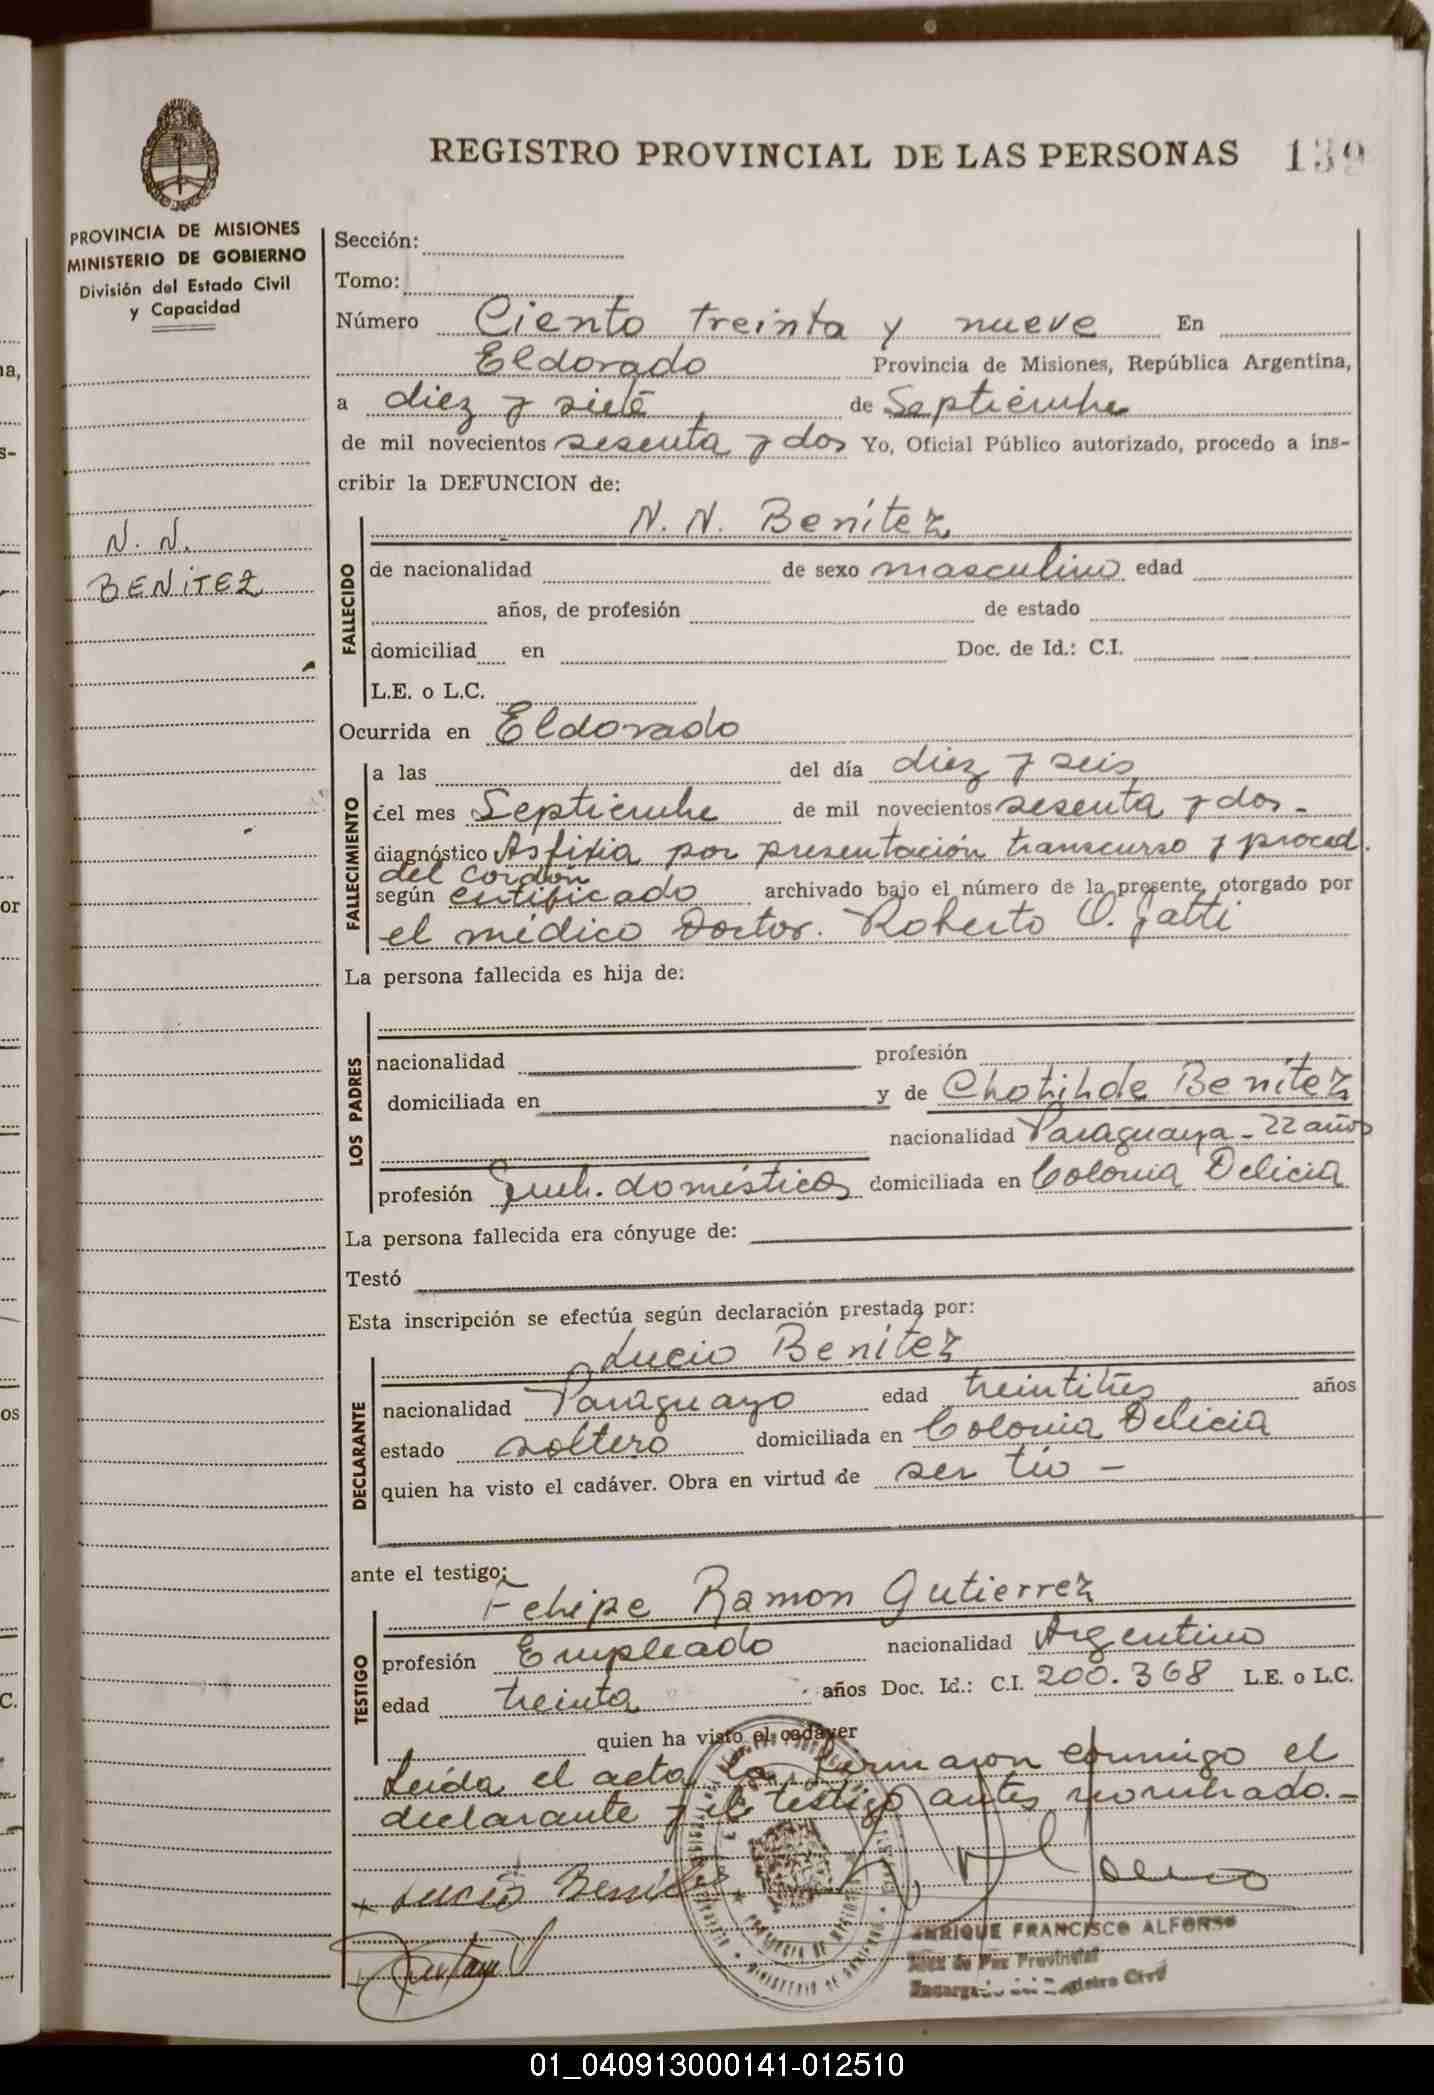 REGISTRO PROVINCIAL DE LAS PERSONAS 139
PROVINCIA DE MISIONES
MINISTERIO DE GOBIERNO
División del Estado Civil
y Capacidad
N. N.
BENITEZ
Sección:
Tomo:
Número Ciento treinta y nueve En
Eldorado Provincia de Misiones, República Argentina,
a diez y siete de Septiembre
de mil novecientos sesenta y dos Yo, Oficial Público autorizado, procedo a ins-
cribir la DEFUNCION de:
N. N. Benitez
FALLECIDO
de nacionalidad de sexo masculino edad
años, de profesión de estado
domiciliad en Doc. de Id.: C.I.
L.E. o L.C.
Ocurrida en Eldorado
FALLECIMIENTO
a las del día diez y seis
del mes Septiembre de mil novecientos sesenta y dos -
diagnóstico Asfixia por presentación transcurso y proced.
del cordón
según certificado archivado bajo el número de la presente, otorgado por
el médico Doctor. Roberto O. Gatti
La persona fallecida es hija de:
LOS PADRES
nacionalidad profesión
domiciliada en y de Chotihde Benitez
nacionalidad Paraguaya - 22 años
profesión domésticos domiciliada en Colonia Delicia
La persona fallecida era cónyuge de:
Testó
Esta inscripción se efectúa según declaración prestada por:
Lucio Benitez
DECLARANTE
nacionalidad Paraguayo edad treintitrés años
estado soltero domiciliada en Colonia Delicia
quien ha visto el cadáver. Obra en virtud de ser tío -
ante el testigo:
Felipe Ramon Gutierrez
TESTIGO
profesión Empleado nacionalidad Argentino
edad treinta años Doc. Id.: C.I. 200.368 L.E. o L.C.
quien ha visto el cadáver
Leída el acta la firmaron conmigo el
declarante y el testigo antes nombrado. -
Lucio Benitez
ENRIQUE FRANCISCO ALFONSO
Juez de Paz Provincial
Encargado del Registro Civil
01_040913000141-012510